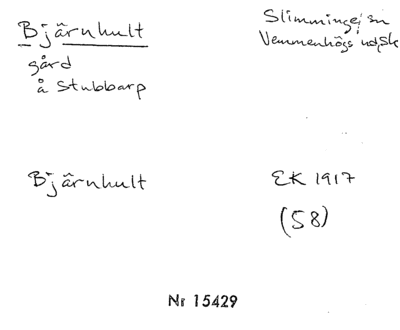 Bjärnhult
gård
å Stubbarp
Slimminge sn
Vemmenhögs hd, Sk
Bjärnhult
EK 1917
(58)
Nr 15429